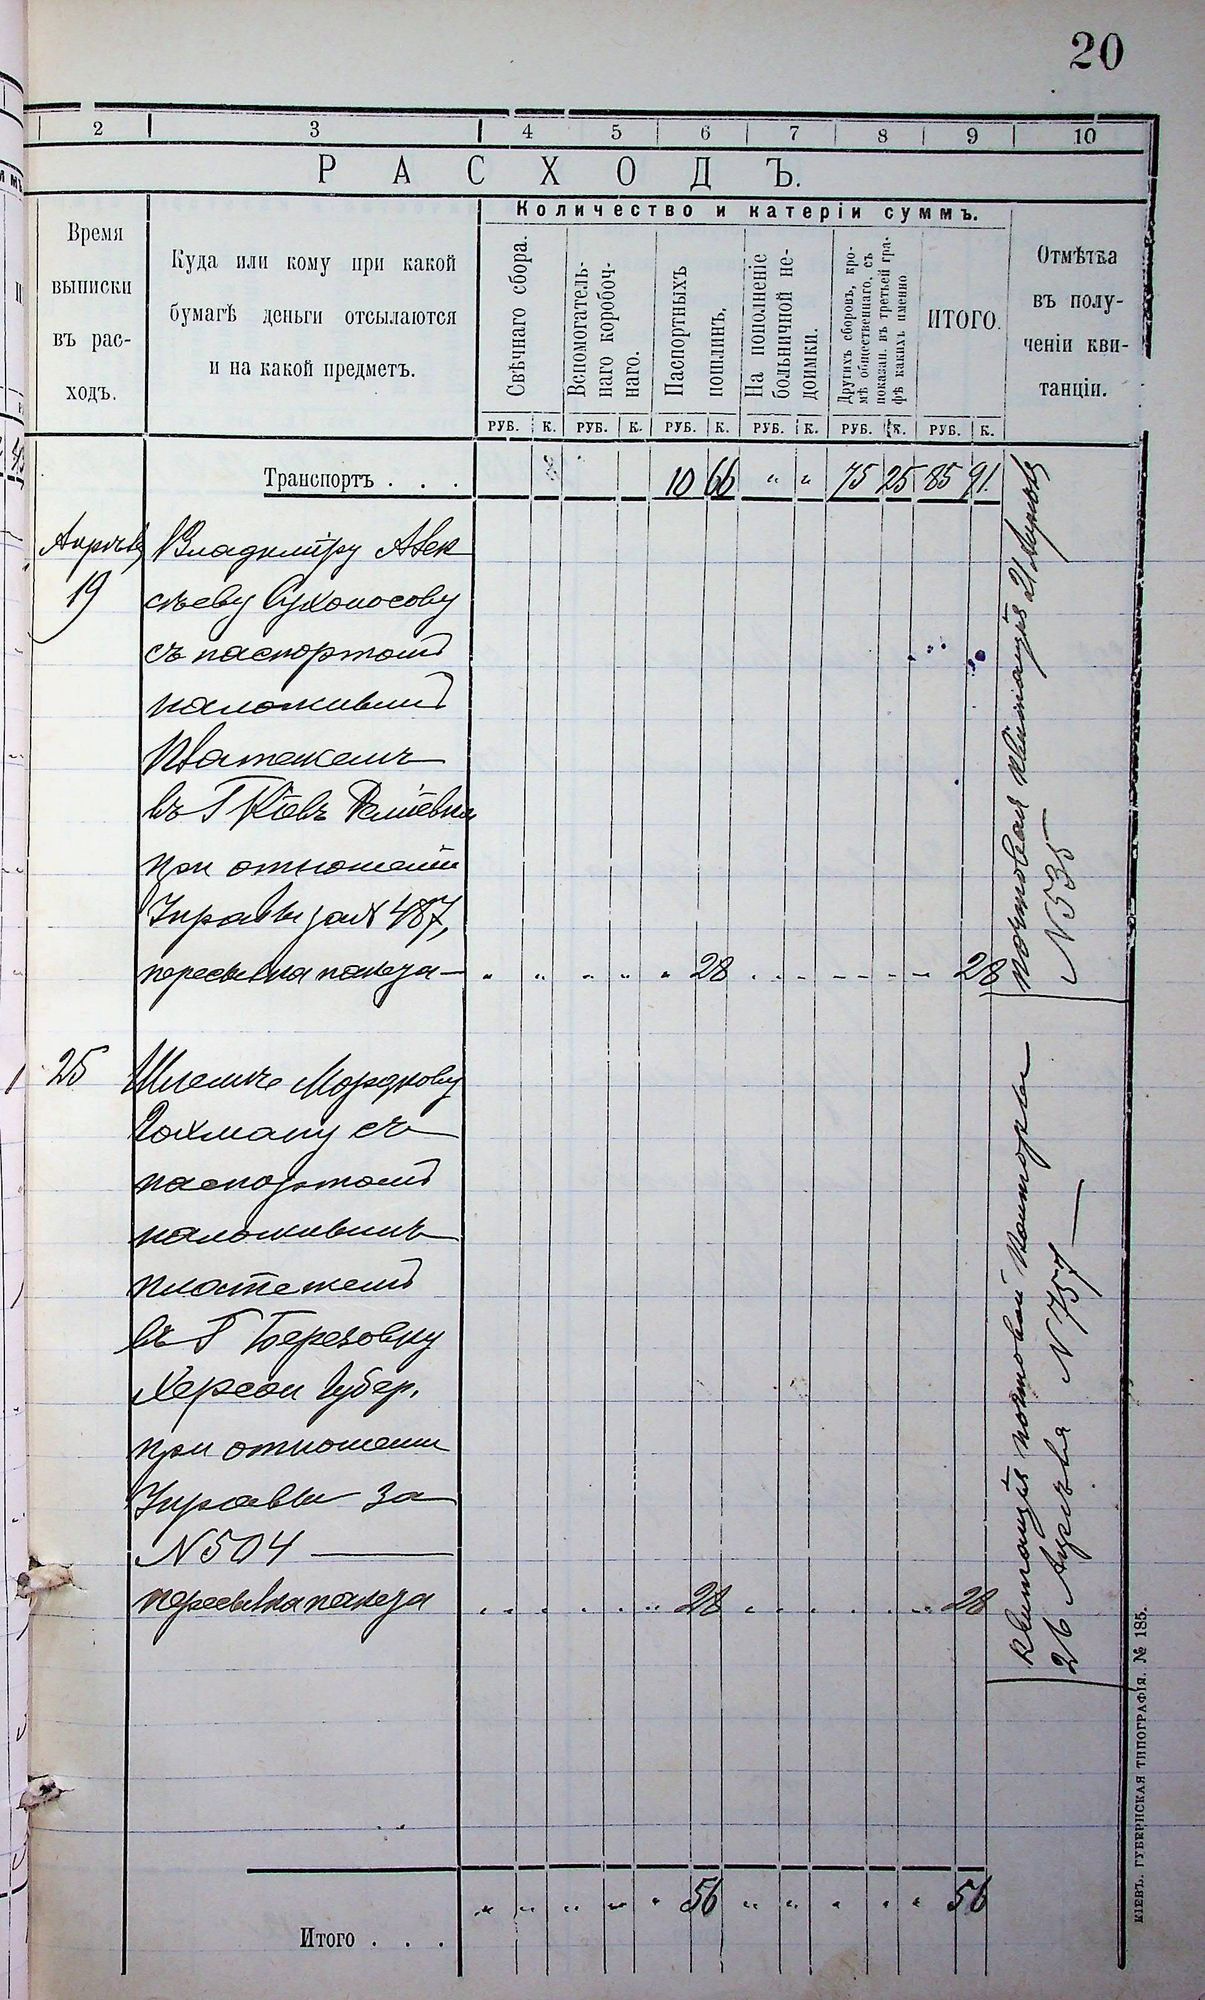 20
2 3 4 5 6 7 8 9 10
РАСХОДЪ.
Время
выписки
въ рас-
ходъ.
Куда или кому при какой
бумагѣ деньги отсылаются
и на какой предметъ.
Количество и катеріи суммъ.
Свѣчнаго сбора.
Вспомогатель-
наго коробоч-
наго.
Паспортныхъ
пошлинъ.
На пополненіе
больничной не-
доимки.
Другихъ сборовъ, кро-
мѣ общественнаго, съ
показан. въ третьей гра-
фѣ какихъ именно
ИТОГО.
Отмѣтка
въ полу-
ченіи кви-
танціи.
РУБ. К. РУБ. К. РУБ. К. РУБ. К. РУБ. К. РУБ. К.
Транспортъ . . . 10 66 " " 75 25 85 91.
Апрѣля Владиміру Алек
19 сѣеву Сухоносову
съ паспортомъ
наложнымъ
платежемъ
въ Г Кіевъ
при отношеніи
Управы за № 487,
пересылка пакета — 28 28
Почтовая квитанція 21 Апрѣля
N 535
25 Шлемѣ Мордкову
Гохману съ
паспортомъ
наложнымъ
платежемъ
въ Г Березовку
Херсон Губер.
при отношении
Управы за
N 504 —
пересылка пакета 28 28
Квитанція почтовой Конторы
26 Апрѣля N 757 —
Итого . . . 56 56
КІЕВЪ. ГУБЕРНСКАЯ ТИПОГРАФІЯ. № 185.